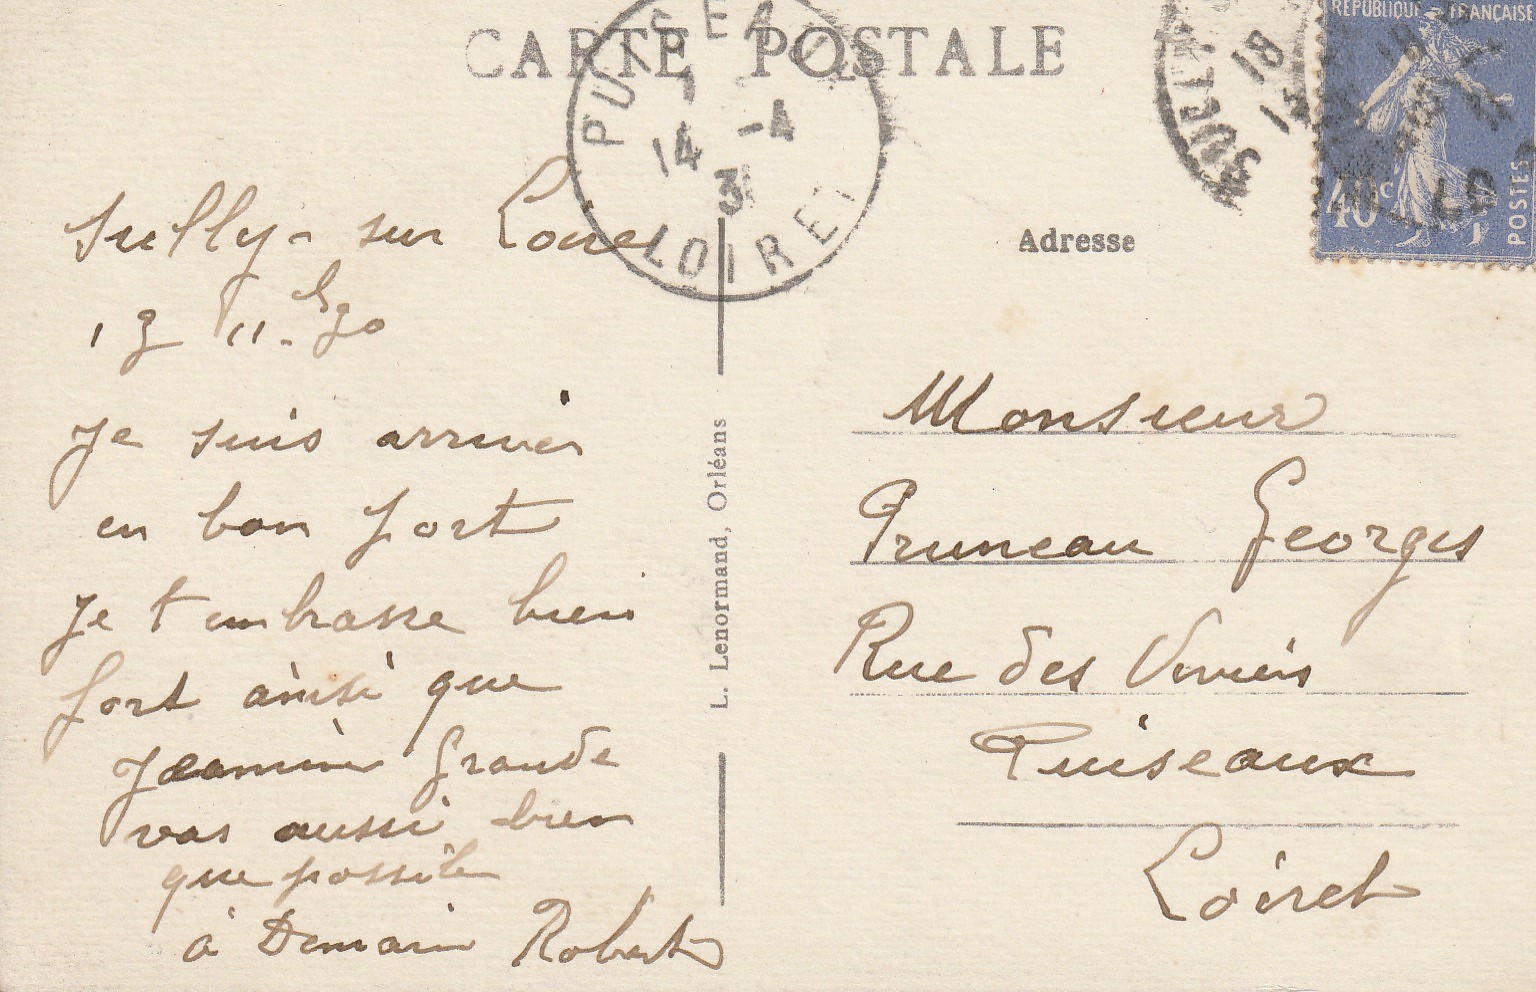 CARTE POSTALE
PUISEAUX
14 -4
31
LOIRET
RÉPUBLIQUE FRANÇAISE
40c
POSTES
18
Adresse
L. Lenormand, Orléans
Sully - sur Loire
11 h 30
Je suis arriver
en bon port
Je t embrasse bien
fort ainsi que
Jeannine Grande
vas aussi bien
que possible
à Demain Robert
Monsieur
Pruneau Georges
Rue des
Puiseaux
Loiret